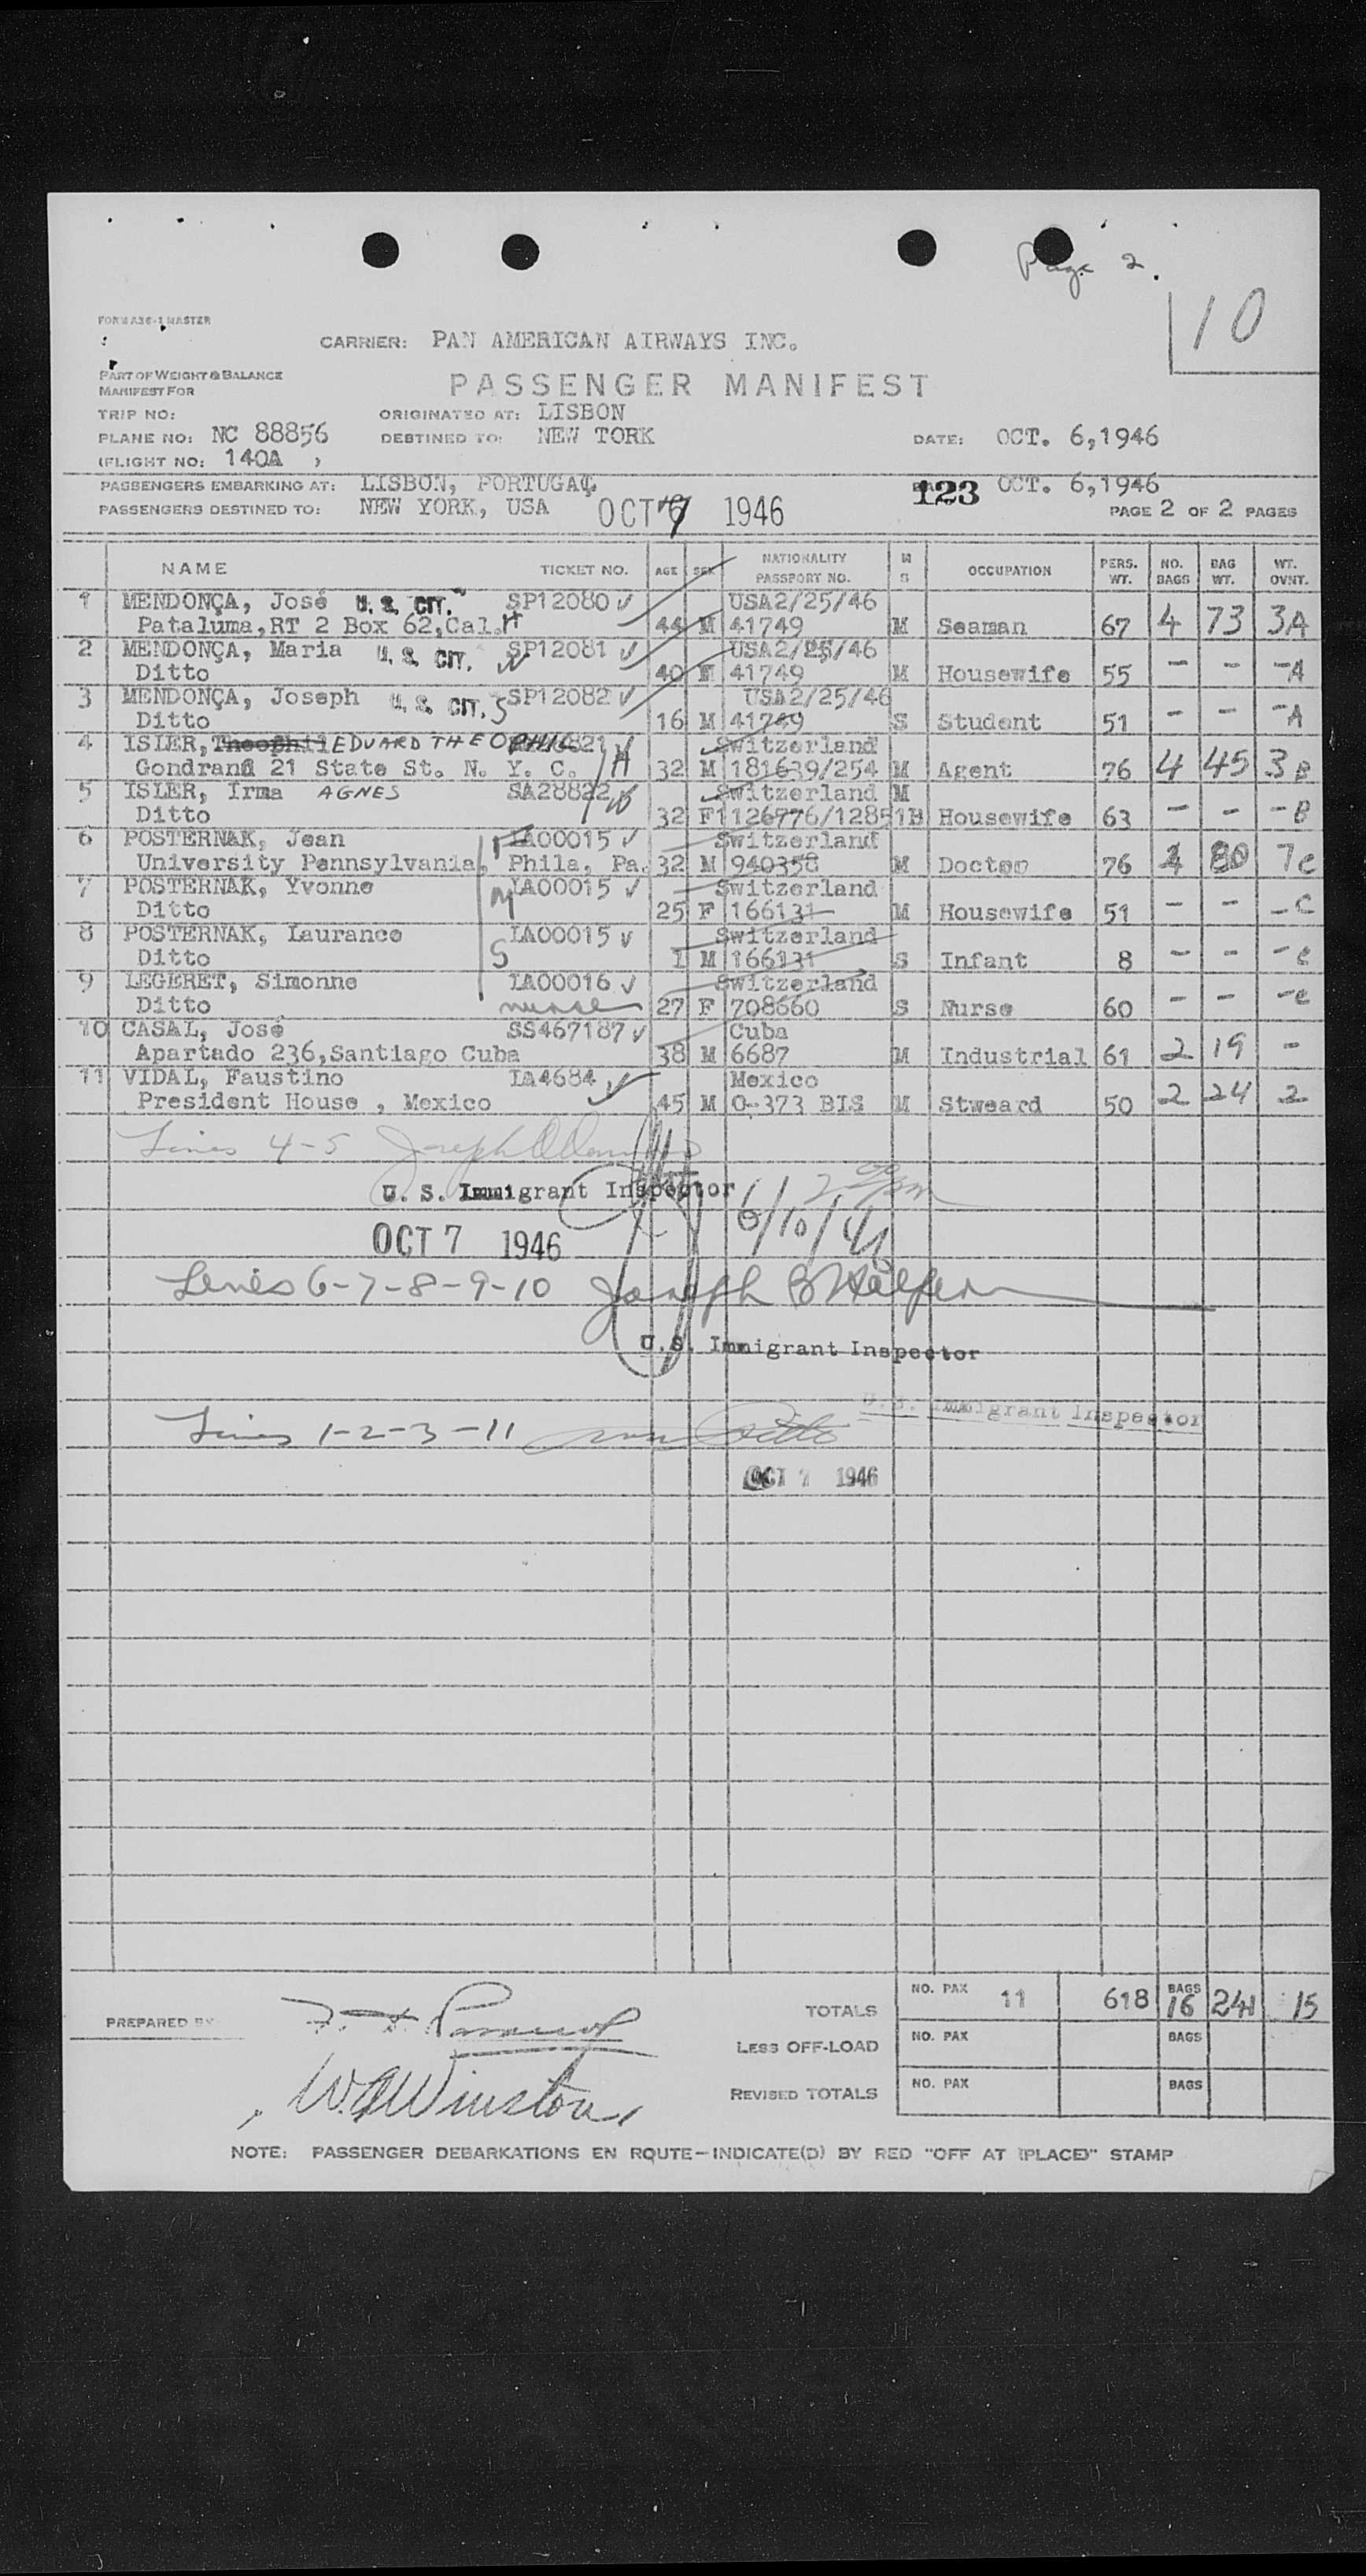 Page 2.
10
FORM A36-1 MASTER
CARRIER: PAN AMERICAN AIRWAYS INC.
PART OF WEIGHT & BALANCE
MANIFEST FOR
PASSENGER MANIFEST
TRIP NO: ORIGINATED AT: LISBON
PLANE NO: NC 88856 DESTINED TO: NEW YORK DATE: OCT. 6,1946
(FLIGHT NO: 140A )
PASSENGERS EMBARKING AT: LISBON, PORTUGAL 123 OCT. 6,1946
PASSENGERS DESTINED TO: NEW YORK, USA OCT 7 1946 PAGE 2 OF 2 PAGES
NAME TICKET NO. AGE SEX NATIONALITY PASSPORT NO. M S OCCUPATION PERS. WT. NO. BAGS BAG WT. WT. OVNT.
1 MENDONÇA, José U. S. CIT. SP12080 USA2/25/46
Pataluma,RT 2 Box 62,Cal. H 44 M 41749 M Seaman 67 4 73 3A
2 MENDONÇA, Maria U. S. CIT. W SP12081 USA2/25/46
Ditto 40 F 41749 M Housewife 55 - - -A
3 MENDONÇA, Joseph U. S. CIT. S SP12082 USA2/25/46
Ditto 16 M 41749 S Student 51 - - -A
4 ISLER, Theophil EDUARD THEOPHIL Switzerland
Gondrand 21 State St. N. Y. C. H 32 M 181639/254 M Agent 76 4 45 3B
5 ISLER, Irma AGNES SA28822 W Switzerland M
Ditto 32 F 1126776/12851B Housewife 63 - - -B
6 POSTERNAK, Jean IA00015 Switzerland
University Pennsylvania, Phila, Pa. 32 M 940358 M Doctor 76 80 7C
7 POSTERNAK, Yvonne IA00015 Switzerland
Ditto 25 F 166131 M Housewife 51 - - -C
8 POSTERNAK, Laurance IA00015 Switzerland
Ditto S 1 M 166131 S Infant 8 - - -C
9 LEGERET, Simonne IA00016 Switzerland
Ditto nurse 27 F 708660 S Nurse 60 - - -C
10 CASAL, José SS467187 Cuba
Apartado 236,Santiago Cuba 38 M 6687 M Industrial 61 2 19 -
11 VIDAL, Faustino IA4684 Mexico
President House , Mexico 45 M 0-373 BIS M Stweard 50 2 24 2
Lines 4-5 Joseph
U. S. Immigrant Inspector
OCT 7 1946
Lines 6-7-8-9-10 Joseph B Halfern
U.S. Immigrant Inspector
U.S. Immigrant Inspector
Lines 1-2-3-11
OCT 7 1946
PREPARED BY
TOTALS NO. PAX 11 618 BAGS 16 241 15
LESS OFF-LOAD NO. PAX BAGS
W.G. Winston
REVISED TOTALS NO. PAX BAGS
NOTE: PASSENGER DEBARKATIONS EN ROUTE—INDICATE(D) BY RED "OFF AT (PLACE)" STAMP